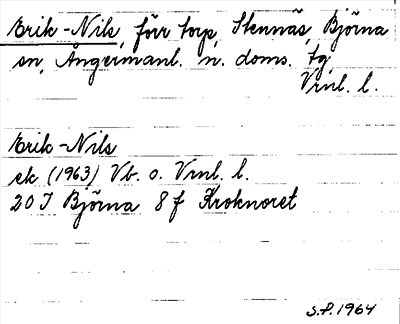 Erik-Nils, förr torp, Stennäs, Björna
sn, Ångermanl. n. doms. tg,
Vrnl. l.
Erik-Nils
ek (1963) Vb. o. Vrnl. l.
20 I Björna 8 f Kroknoret
S.P. 1964